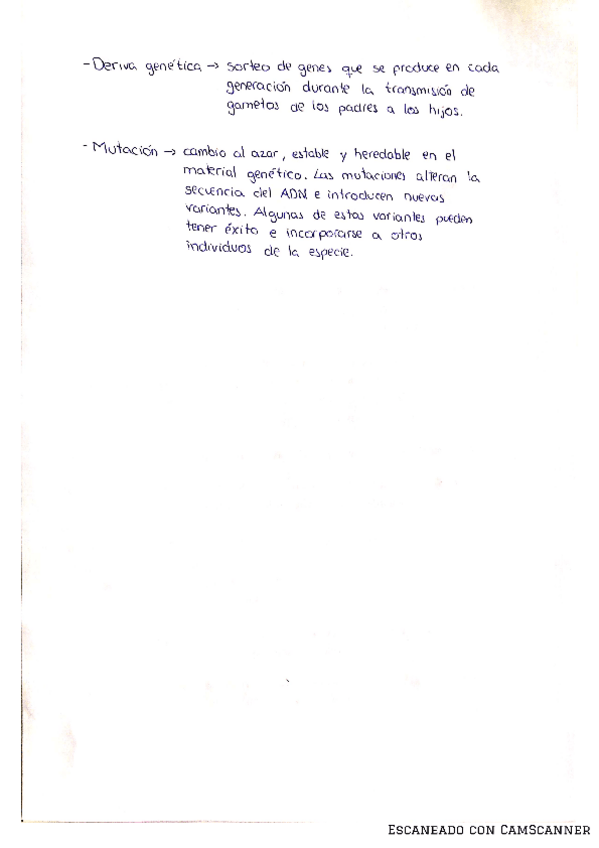 - Deriva genética → sorteo de genes que se produce en cada
generación durante la transmisión de
gametos de los padres a los hijos.
- Mutación → cambio al azar, estable y heredable en el
material genético. Las mutaciones alteran la
secuencia del ADN e introducen nuevas
variantes. Algunas de estas variantes pueden
tener éxito e incorporarse a otros
individuos de la especie.
ESCANEADO CON CAMSCANNER